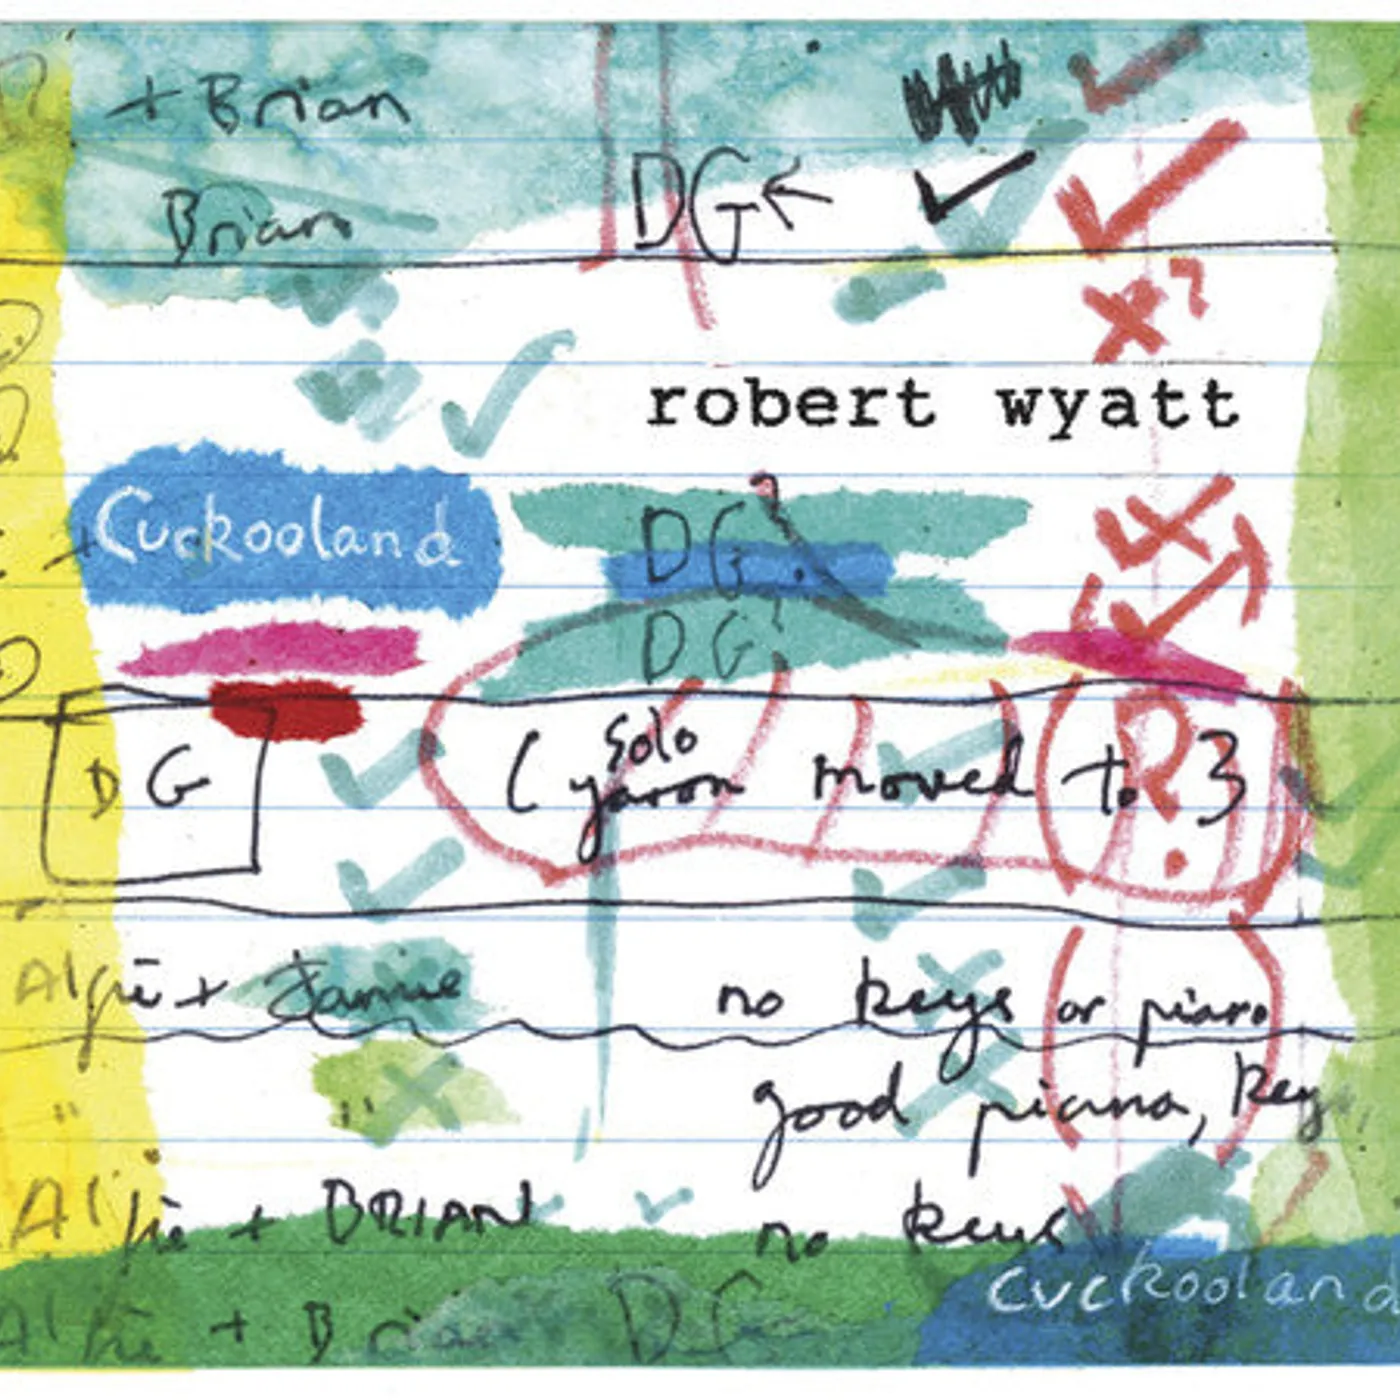 + Brian
Brian DG
robert wyatt
Cuckooland DG
DG
DG (solo
yaron moved to ? }
Alfie + Jamie no keys or piano
" good piano, keys
Alfie + BRIAN no keys
cuckooland
Alfie + Brian DG